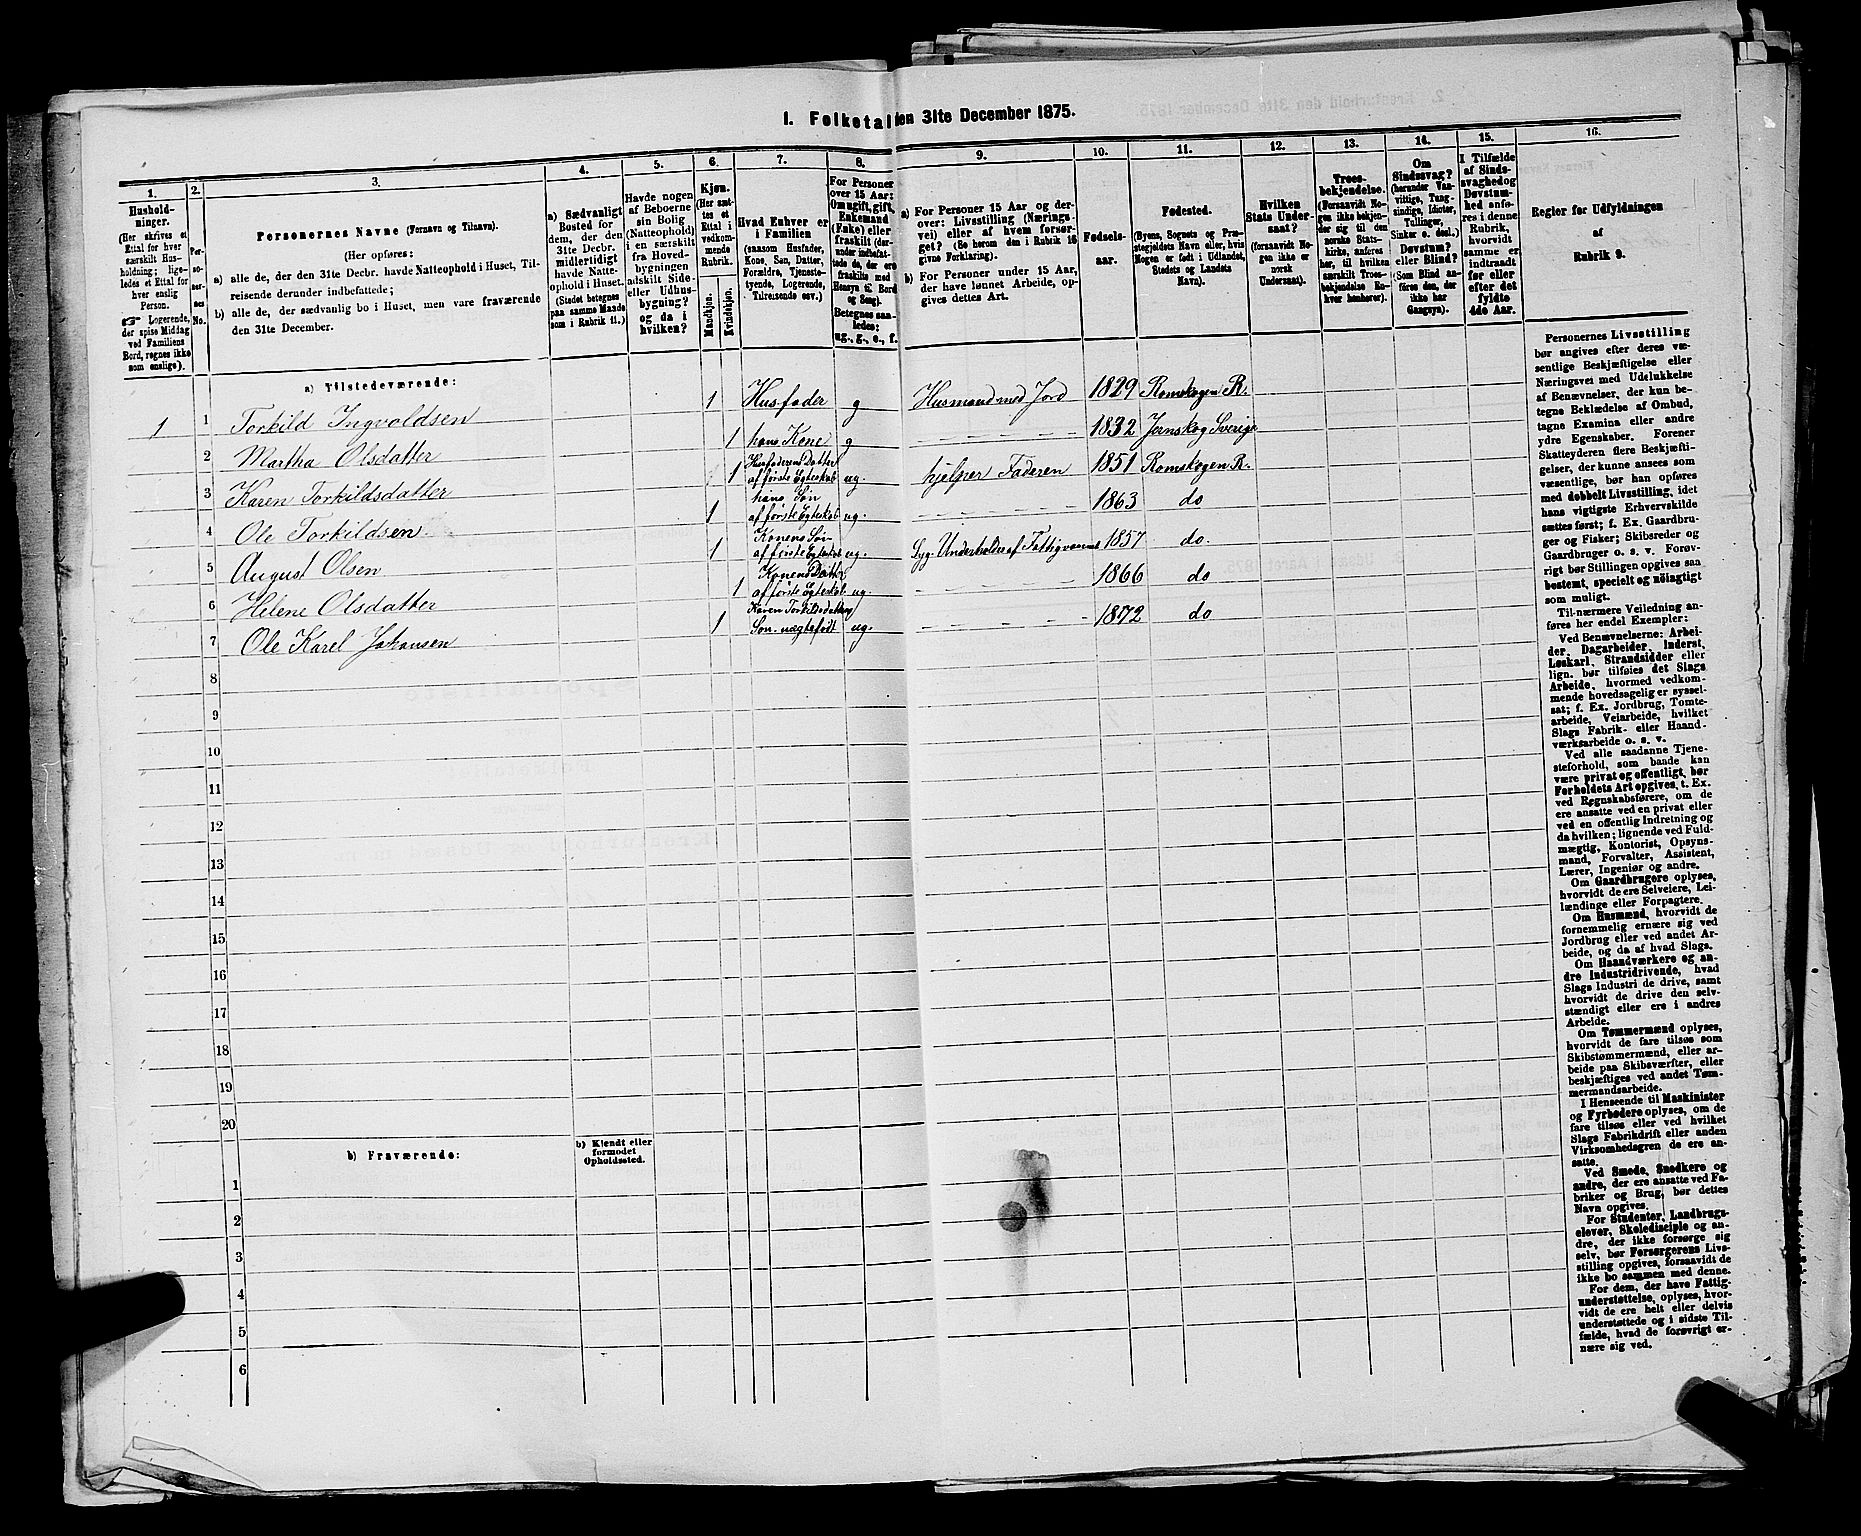 I. Folketal den 31te December 1875.
1. 2. 3. 4. 5. 6. 7. 8. 9. 10. 11. 12. 13. 14. 15. 16.
Hushold-
ninger.
(Her skrives et
Ettal for hver
særskilt Hus-
holdning; lige-
ledes et Ettal for
hver enslig
Person.
☞ Logerende,
der spise Middag
ved Familiens
Bord, regnes ikke
som enslige).
Per-
so-
ner-
nes
No.
Personernes Navne (Fornavn og Tilnavn).
(Her opføres:
a) alle de, der den 31te Decbr. havde Natteophold i Huset, Til-
reisende derunder indbefattede;
b) alle de, der sædvanlig bo i Huset, men vare fraværende
den 31te December.
a) Sædvanligt
Bosted for
dem, der den
31te Decbr.
midlertidigt
havde Natte-
ophold i Huset.
(Stedet betegnes
paa samme Maade
som i Rubrik 11.)
Havde nogen
af Beboerne
sin Bolig
(Natteophold)
i en særskilt
fra Hoved-
bygningen
adskilt Side-
eller Udhus-
bygning?
og da i
hvilken?
Kjøn.
(Her sæt-
tes et
Ettal i
vedkom-
mende
Rubrik.
Mandkjøn.
Kvindekjøn.
Hvad Enhver er
i Familien
(saasom Husfader,
Kone, Søn, Datter,
Forældre, Tjeneste-
tyende, Logerende,
Tilreisende osv.)
For Personer
over 15 Aar:
Om ugift, gift,
Enkemand
(Enke) eller
fraskilt (der-
under indbefat-
tede de, der ere
fraskilte med
Hensyn til Bord
og Seng).
Betegnes saa-
ledes:
ug., g., e., f.
a) For Personer 15 Aar og der-
over: Livsstilling (Nærings-
vei) eller af hvem forsør-
get? (Se herom den i Rubrik 16
givne Forklaring).
b) For Personer under 15 Aar,
der have lønnet Arbeide, op-
gives dettes Art.
Fødsels-
aar.
Fødested.
(Byens, Sognets og Præ-
stegjeldets Navn eller, hvis
Nogen er født i Udlandet,
Stedets og Landets
Navn).
Hvilken
Stats Under-
saat?
(forsaavidt No-
gen ikke er
norsk
Undersaat).
Troes-
bekjendelse.
(Forsaavidt No-
gen ikke bekjen-
der sig til den
norske Stats-
kirke, anføres
her, til hvilken
særskilt Troes-
bekjendelse En-
hver henhører).
Om
Sindssvag?
(herunder Van-
vittige, Tung-
sindige, Idioter,
Tullinger,
Sinker o. desl.)
Døvstum?
eller Blind?
(Som Blind an-
føres den, der
ikke har
Gangsyn).
I Tilfælde
af Sinds-
svaghed og
Døvstum-
hed anfø-
res i denne
Rubrik,
hvorvidt
samme er
indtraadt
før eller
efter det
fyldte
4de Aar.
Regler for Udfyldningen
af
Rubrik 9.
a) Tilstedeværende:
1 1 Torkild Ingvoldsen 1 Husfader g Husmand med Jord 1829 Romskogen R.
2 Martha Olsdatter 1 hans Kone g 1832 Jernskog Sverige
3 Karen Torkildsdatter 1 Husfaderens Datter af første Egteskab ug. hjelper Faderen 1851 Romskogen R.
4 Ole Torkildsen 1 hans Søn af første Egteskab ug. 1863 do
5 August Olsen 1 Konens Søn af første Egteskab ug. Syg. Underholdes af Fattigvæsenet 1857 do.
6 Helene Olsdatter 1 Konens Datter af første Egteskab ug. 1866 do
7 Ole Karel Johansen 1 Karen Torkildsdatters Søn. uægtefødt ug. 1872 do
8
9
10
11
12
13
14
15
16
17
18
19
20
b) Fraværende:
b) Kjendt eller
formodet
Opholdssted.
1
2
3
4
5
6
Personernes Livsstilling
bør angives efter deres væ-
sentlige Beskjæftigelse eller
Næringsvei med Udelukkelse
af Benævnelser, der kun be-
tegne Beklædelse af Ombud,
tagne Examina eller andre
ydre Egenskaber. Forener
Skatteyderen flere Beskjæfti-
gelser, der kunne ansees som
væsentlige, bør han opføres
med dobbelt Livsstilling, idet
hans vigtigste Erhvervskilde
sættes først; f. Ex. Gaardbru-
ger og Fisker; Skibsreder og
Gaardbruger o. s. v. Forøv-
rigt bør Stillingen opgives saa
bestemt, specielt og nøiagtigt
som muligt.
Til nærmere Veiledning an-
føres her endel Exempler:
Ved Benævnelserne: Arbei-
der, Dagarbeider, Inderst,
Løskarl, Strandsidder eller
lign. bør tilføies det Slags
Arbeide, hvormed vedkom-
mende hovedsagelig er syssel-
sat; f. Ex. Jordbrug, Tomte-
arbeide, Veiarbeide, hvilket
Slags Fabrik- eller Haand-
værksarbeide o. s. v.
Ved alle saadanne Tjene-
steforhold, som baade kan
være privat og offentligt, bør
Forholdets Art opgives, t. Ex.
ved Regnskabsførere, om de
ere ansatte ved en privat eller
ved en offentlig Indretning og
da hvilken; lignende ved Fuld-
mægtig, Kontorist, Opsyns-
mand, Forvalter, Assistent,
Lærer, Ingeniør og andre.
Om Gaardbrugere oplyses,
hvorvidt de ere Selveiere, Lei-
lændinge eller Forpagtere.
Om Husmænd, hvorvidt de
fornemmelig ernære sig ved
Jordbrug eller ved andet Ar-
beide, og da af hvad Slags.
Om Haandværkere og an-
dre Industridrivende, hvad
Slags Industri de drive, samt
hvorvidt de drive den selv-
stændigt eller ere i andres
Arbeide.
Om Tømmermænd oplyses,
hvorvidt de fare tilsøs som
Skibstømmermænd, eller ar-
beide paa Skibsværfter, eller
beskjæftiges ved andet Tøm-
mermandsarbeide.
I Henseende til Maskinister
og Fyrbødere oplyses, om de
fare tilsøs eller ved hvilket
Slags Fabrikdrift eller anden
Virksomhedsgren de ere an-
satte.
Ved Smede, Snedkere og
andre, der ere ansatte ved Fa-
briker og Brug, bør dettes
Navn opgives.
For Studenter, Landbrugs-
elever, Skoledisciple og an-
dre, der ikke forsørge sig
selv, bør Forsørgerens Livs-
stilling opgives, forsaavidt de
ikke bo sammen med denne.
For dem, der have Fattig-
understøttelse, oplyses, hvor-
vidt de ere helt eller delvis
understøttede og i sidste Til-
fælde, hvad de forøvrigt er-
nære sig ved.